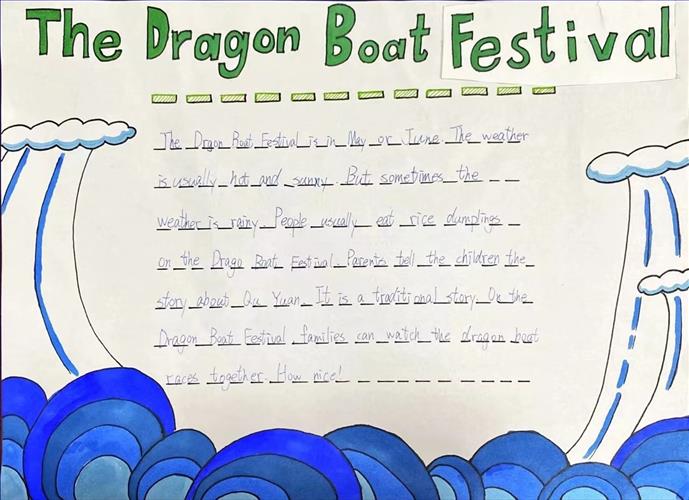 The Dragon Boat Festival
The Drgon Boat Festival is in May or June. The weather
is usually hot and sunny. But sometimes the
weather is rainy. People usually eat rice dumplings
on the Drago Boat Festival. Parents tell the children the
story about Qu Yuan. It is a traditional story. On the
Dragon Boat Festival families can watch the dragon boat
races together. How nice!